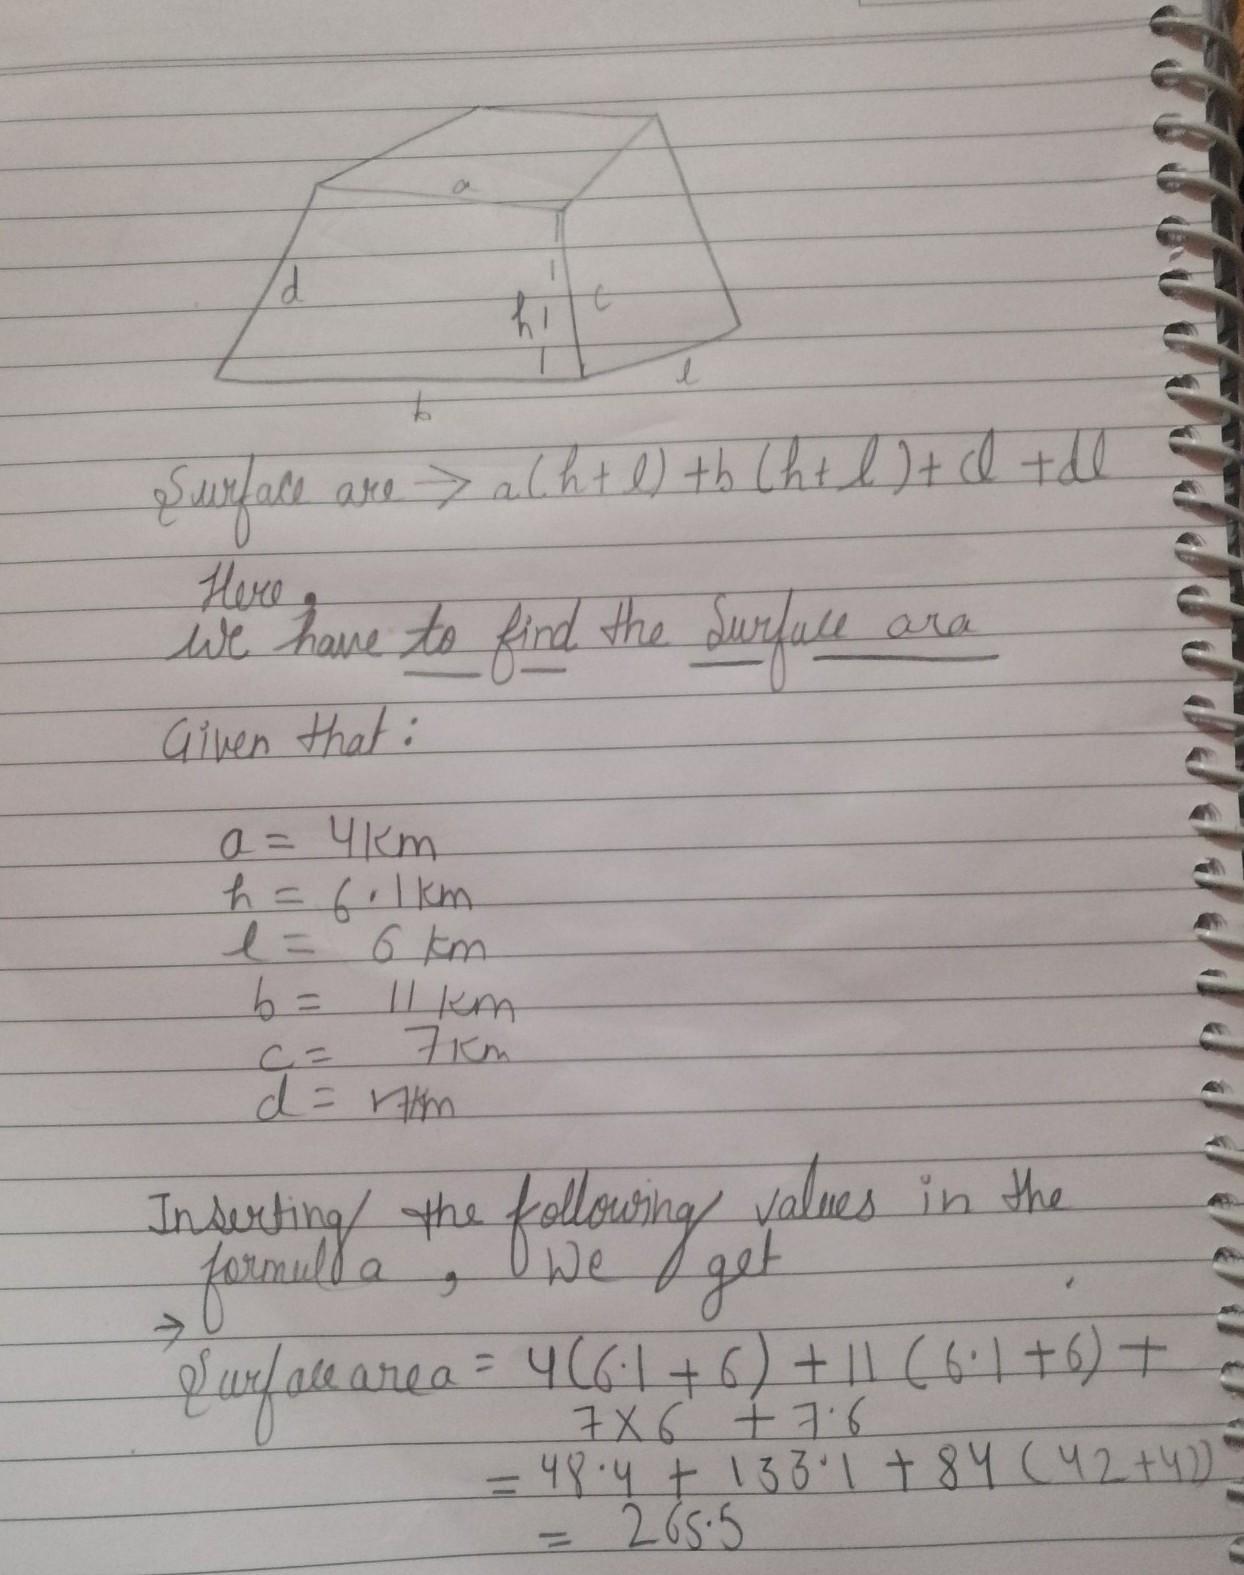 a
d
h
c
l
b
Surface are → a(h+l)+b(h+l)+cl+dl
Here,
We have to find the Surface ara
Given that:
a = 4km
h = 6.1km
l = 6 km
b = 11 km
c = 7km
d = 7km
Inserting the following values in the
formula, we get
→
Surface area = 4(6.1+6)+11(6.1+6)+
7×6 +7.6
= 48.4 + 133.1 + 84 (42+42)
= 265.5